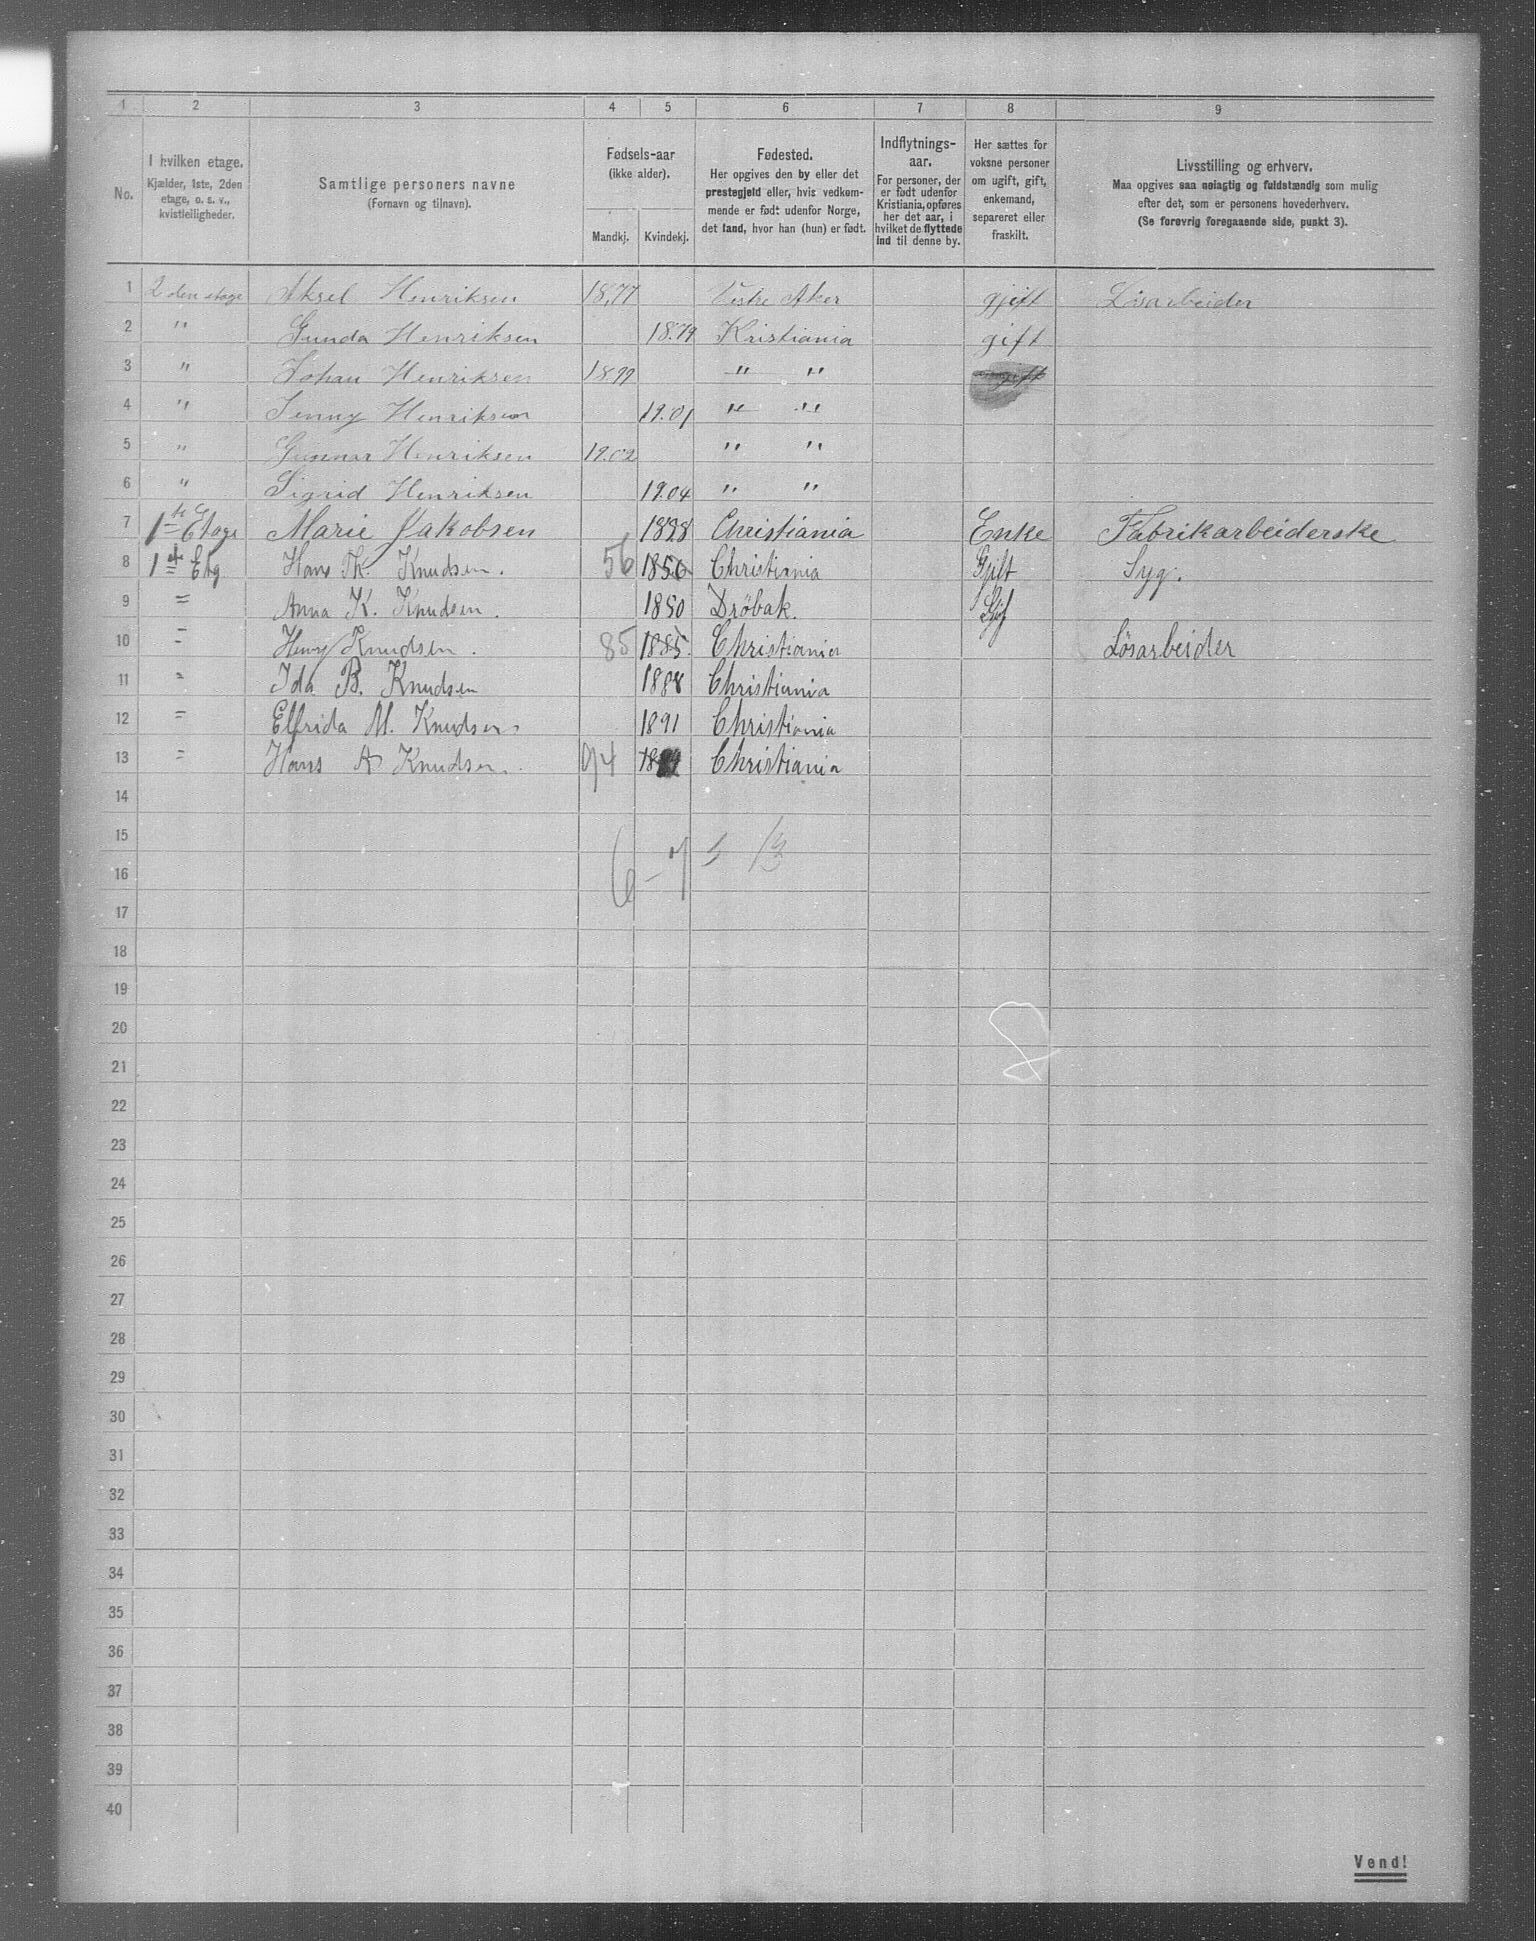 1 2 3 4 5 6 7 8 9
No. I hvilken etage. Kjælder, 1ste, 2den etage, o. s. v., kvistleiligheder. Samtlige personers navne (Fornavn og tilnavn). Fødsels-aar (ikke alder). Mandkj. Kvindekj. Fødested. Her opgives den by eller det prestegjeld eller, hvis vedkommende er født udenfor Norge, det land, hvor han (hun) er født. Indflytnings-aar. For personer, der er født udenfor Kristiania, opføres her det aar, i hvilket de flyttede ind til denne by. Her sættes for voksne personer om ugift, gift, enkemand, separeret eller fraskilt. Livsstilling og erhverv. Maa opgives saa nøiagtig og fuldstændig som mulig efter det, som er personens hovederhverv. (Se forøvrig foregaaende side, punkt 3).
1 2 den etage Aksel Henriksen 18,77 Vestre Aker gjift Løsarbeider
2 " Gunda Henriksen 18.79 Kristiania gift
3 " Johan Henriksen 18.99 " "
4 " Jenny Henriksen 19.01 " "
5 " Gunnar Henriksen 19.02 " "
6 " Sigrid Henriksen 19.04 " "
7 1ste Etage Marie Jakobsen 1828 Christiania Enke Fabrikarbeiderske
8 1ste Etg Hans Th. Knudsen. 56 1856 Christiania Gjift Syg.
9 = Anna K. Knudsen. 1850 Drøbak. Gif
10 = Henry Knudsen. 85 1885. Christiania Løsarbeider
11 = Ida B. Knudsen 1888 Christiania
12 = Elfrida M. Knudsen 1891 Christiania
13 = Hans A Knudsen. 94 Christiania
14
15
16
6 - 7 = 13
17
18
19
20
8
21
22
23
24
25
26
27
28
29
30
31
32
33
34
35
36
37
38
39
40
Vend!